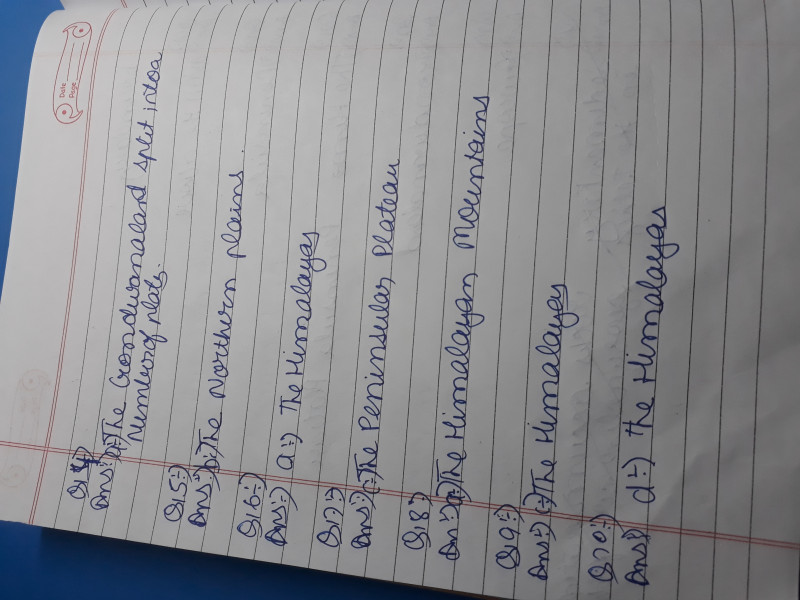 Date
Page
Q.4
Ans:-) a:- The Gondwanaland split into a
Number of plats.
Q.5:-)
Ans:-) b:- The Northern plains.
Q.6:-)
Ans:-) a:-) The Himalayas
Q.7:-)
Ans:-) c:- The Peninsular Plateau
Q.8:-)
An:-) The Himalayan Mountains
Q.9:-)
Ans:-) c:-) The Himalayas
Q.10:-)
Ans:-) d:-) the Himalayas